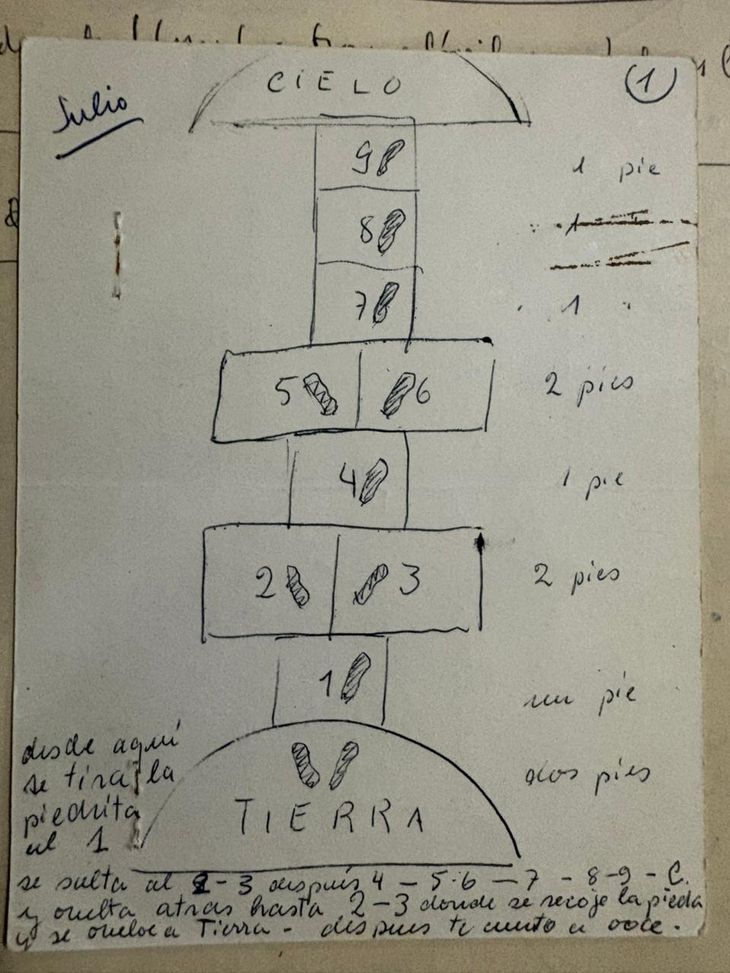 Julio
1
CIELO
9 1 pie
8 1
7 1 "
5 6 2 pies
4 1 pie
2 3 2 pies
1 un pie
dos pies
TIERRA
desde aquí
se tira la
piedrita
al 1
se salta al 2-3 después 4 - 5-6 - 7 - 8-9 - C.
y vuelta atras hasta 2-3 donde se recoje la piedra
y se vuelve a Tierra - despues te